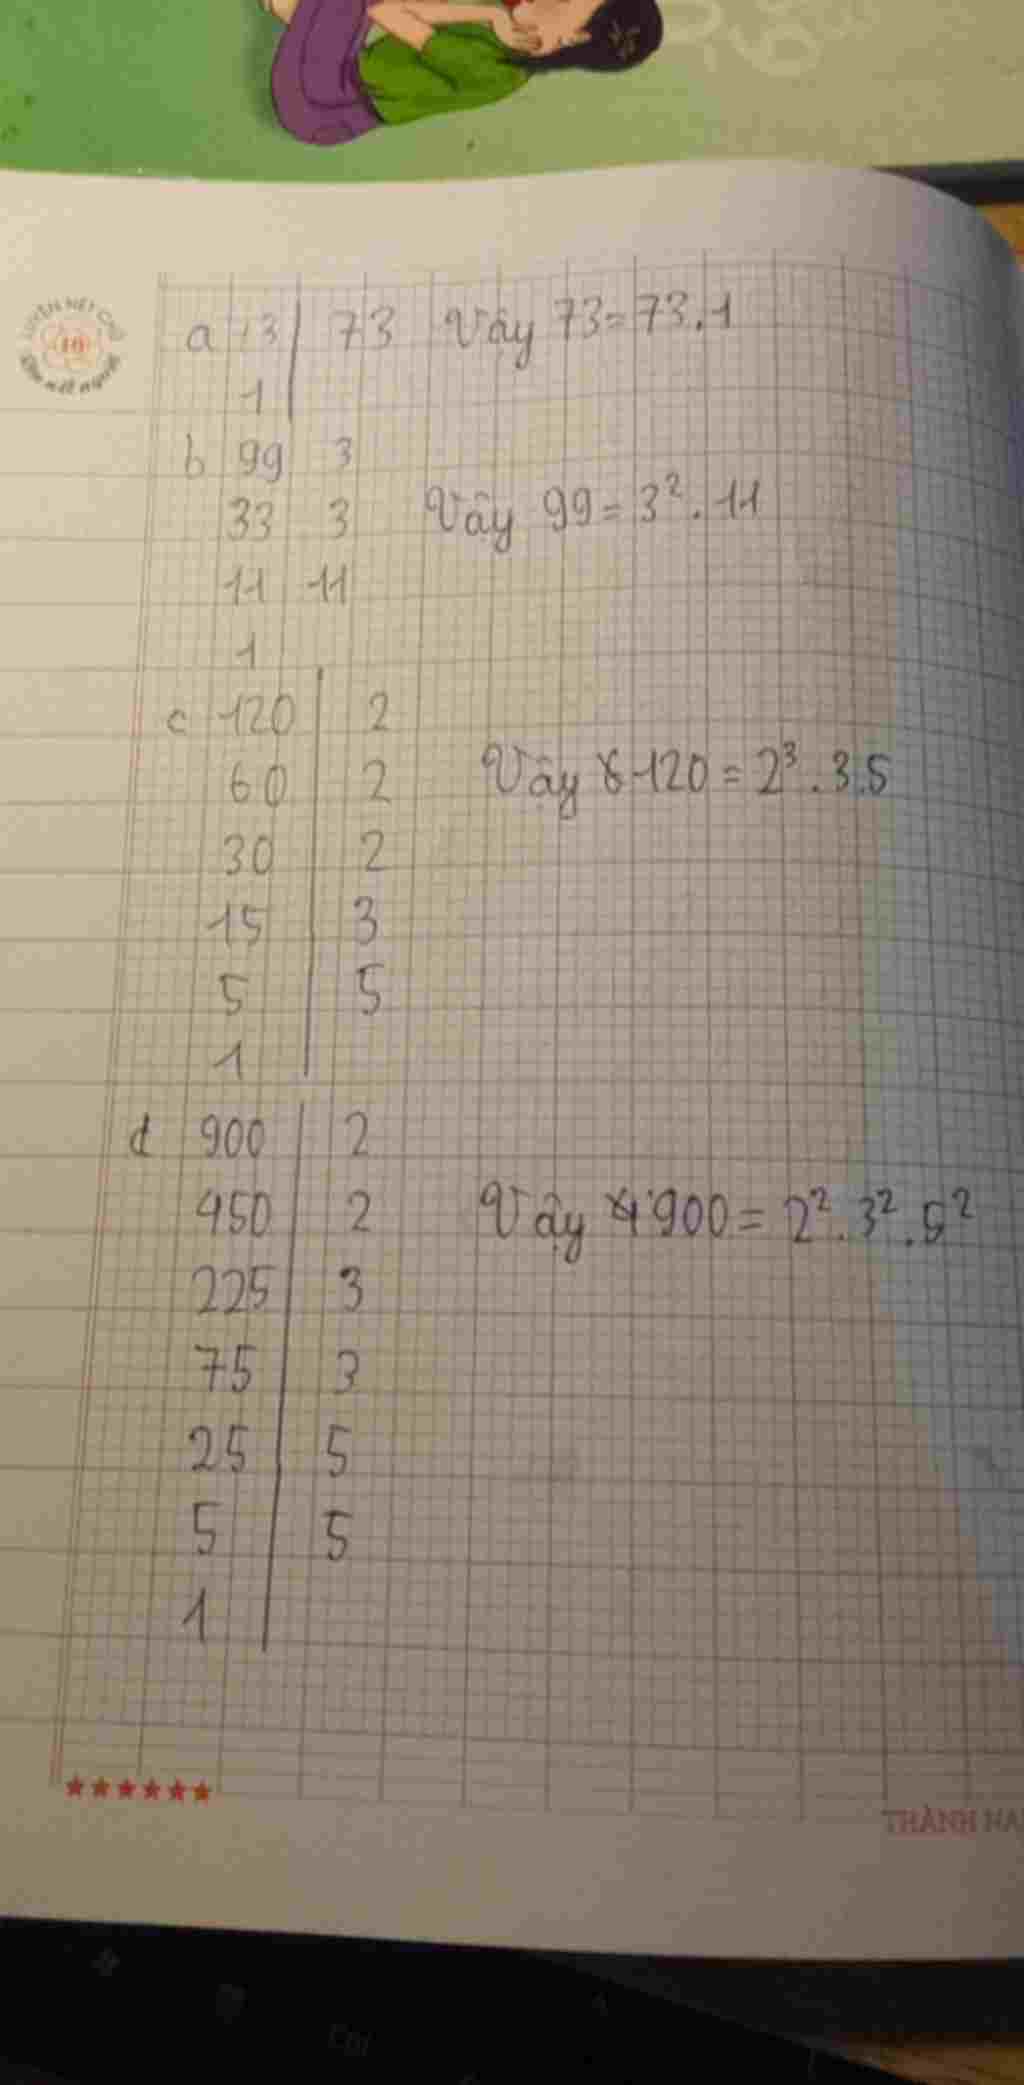 a 73 | 73 Vậy 73 = 73.1
1
b 99 3
33 3 Vậy 99 = 3². 11
11 11
1
c 120 | 2
60 | 2 Vậy 120 = 2³. 3.5
30 | 2
15 | 3
5 | 5
1
d 900 | 2
450 | 2 Vậy 900 = 2². 3². 5²
225 | 3
75 | 3
25 | 5
5 | 5
1
★★★★★★
THÀNH